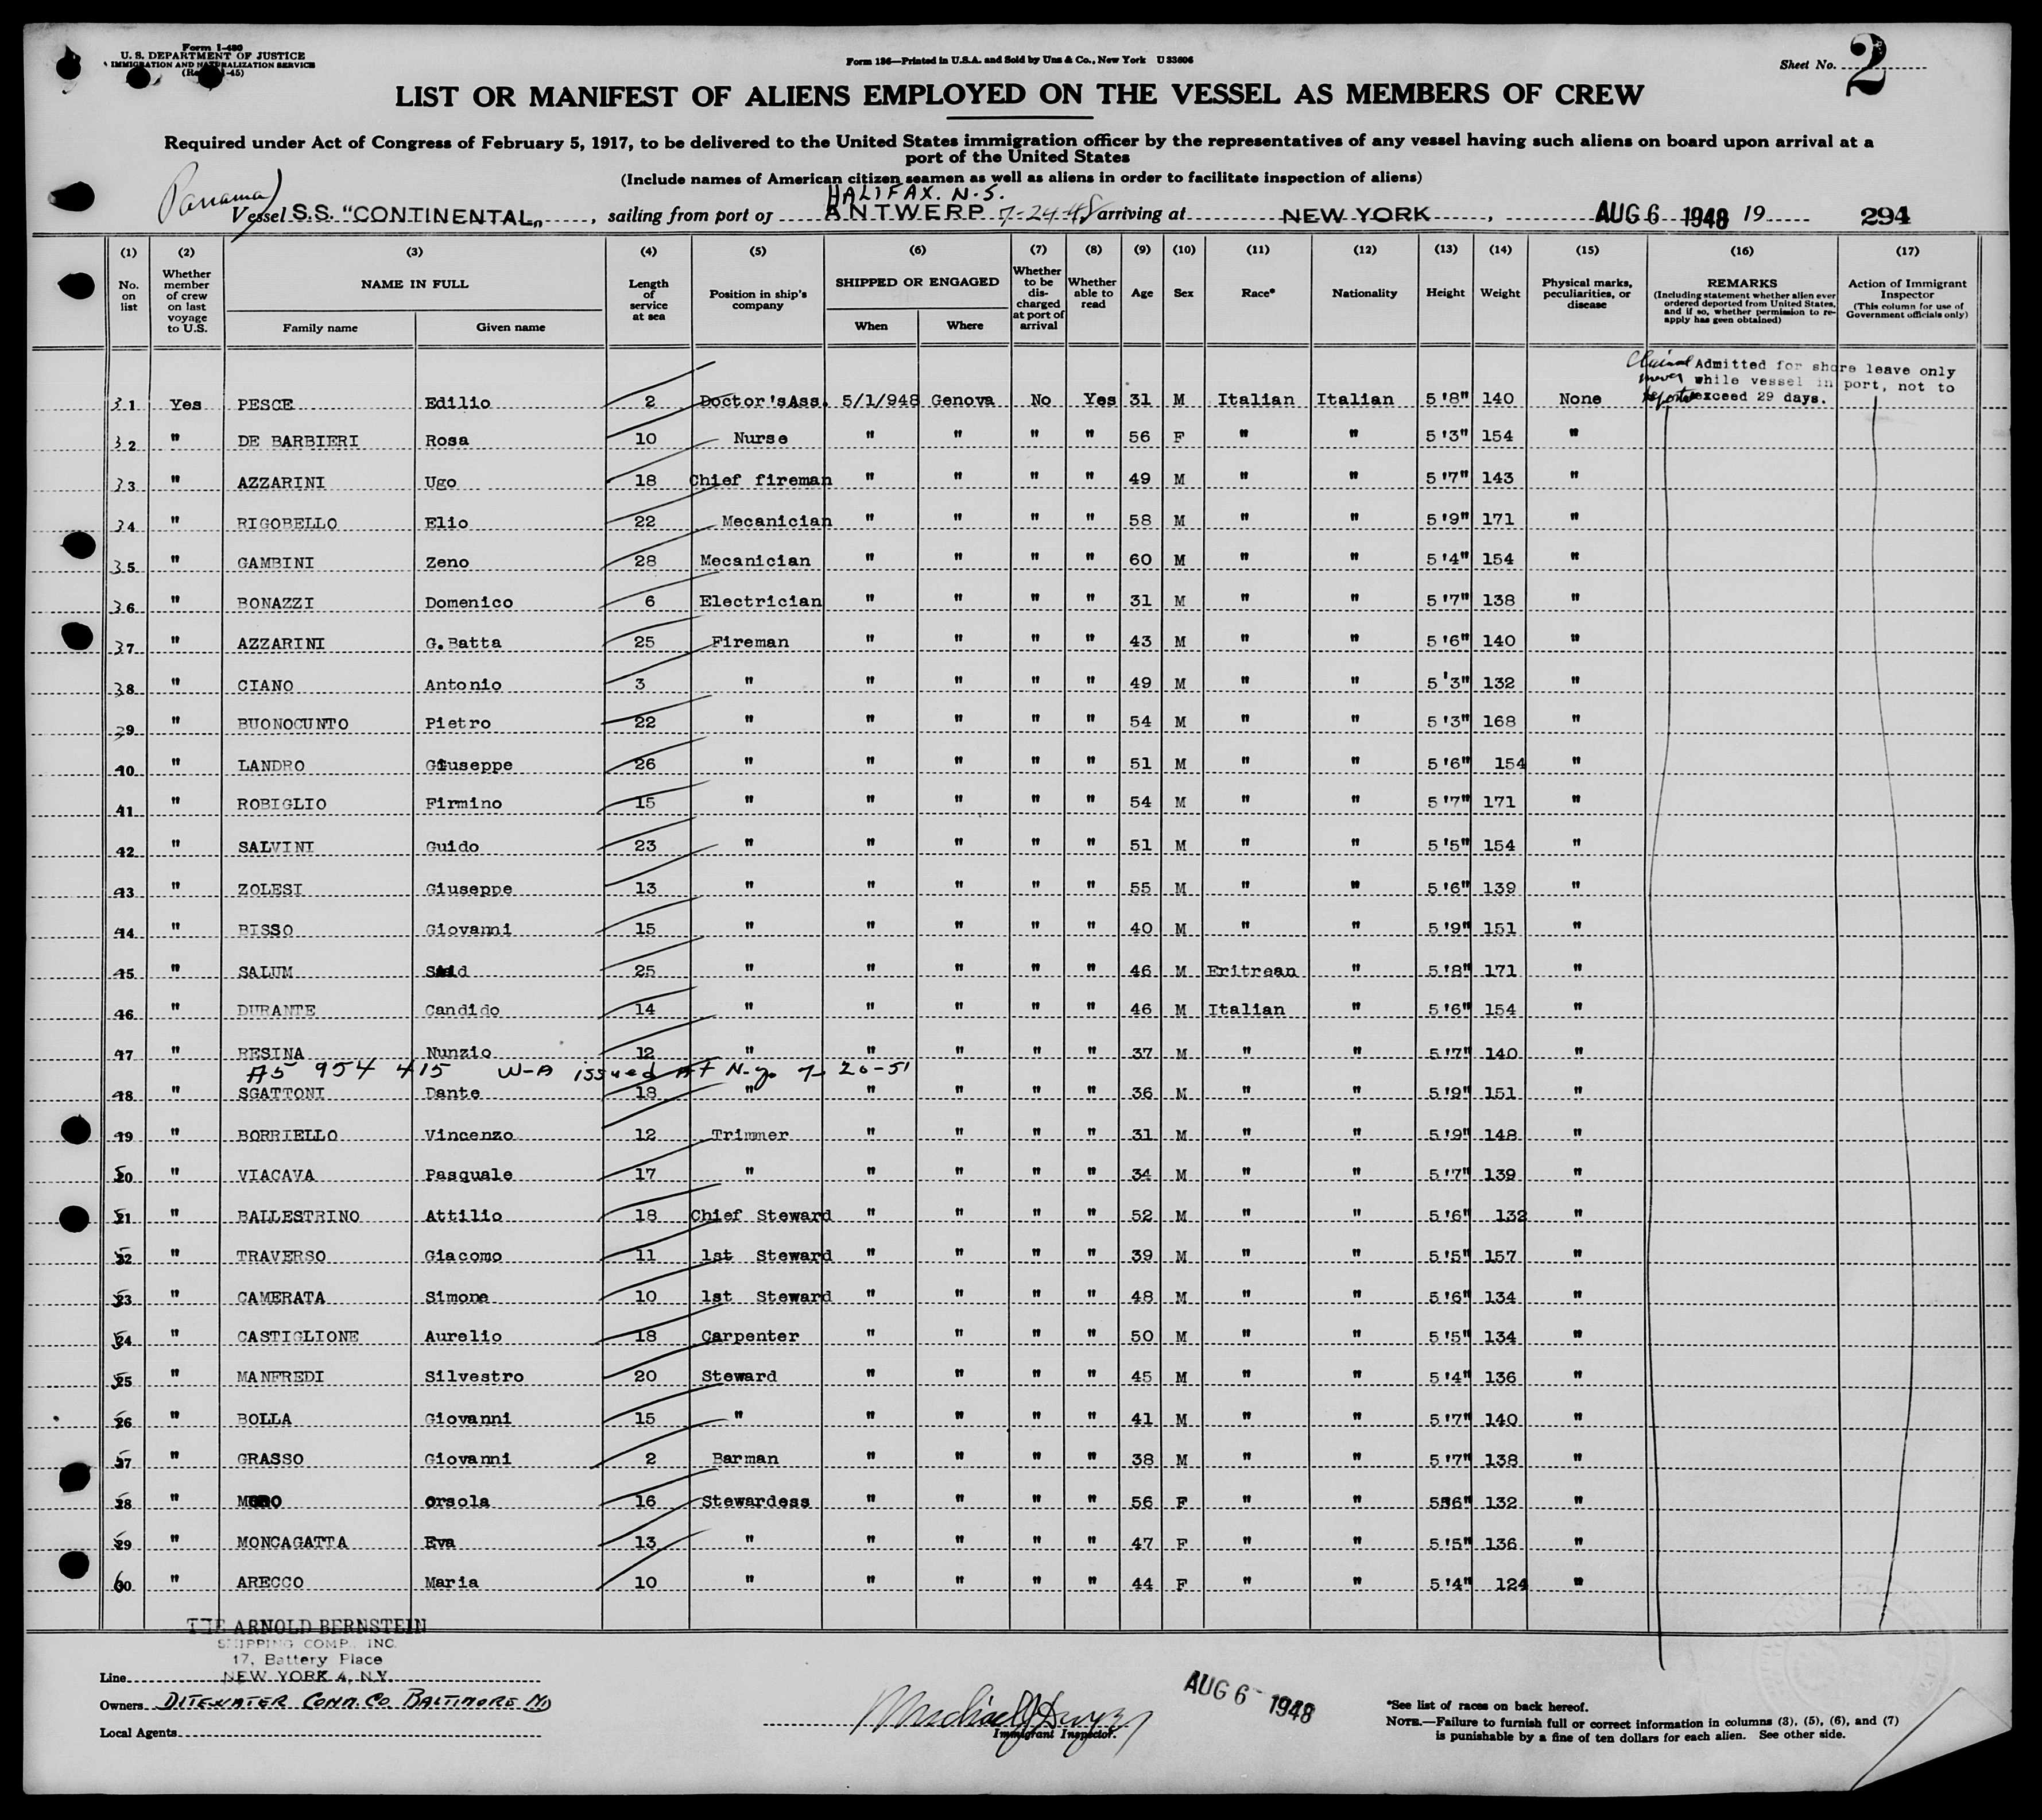 Form I-480
U. S. DEPARTMENT OF JUSTICE
IMMIGRATION AND NATURALIZATION SERVICE
Form 136—Printed in U.S.A. and Sold by Unz & Co., New York U 33606
Sheet No. 2
LIST OR MANIFEST OF ALIENS EMPLOYED ON THE VESSEL AS MEMBERS OF CREW
Required under Act of Congress of February 5, 1917, to be delivered to the United States immigration officer by the representatives of any vessel having such aliens on board upon arrival at a
port of the United States
(Include names of American citizen seamen as well as aliens in order to facilitate inspection of aliens)
Panama HALIFAX. N.S.
Vessel S.S. "CONTINENTAL„ , sailing from port of ANTWERP 7-24-48 arriving at NEW YORK , AUG 6 1948 19 294
(1) (2) (3) (4) (5) (6) (7) (8) (9) (10) (11) (12) (13) (14) (15) (16) (17)
No. on list Whether member of crew on last voyage to U.S. NAME IN FULL Length of service at sea Position in ship's company SHIPPED OR ENGAGED Whether to be discharged at port of arrival Whether able to read Age Sex Race* Nationality Height Weight Physical marks, peculiarities, or disease REMARKS (Including statement whether alien ever ordered deported from United States, and if so, whether permission to re-apply has geen obtained) Action of Immigrant Inspector (This column for use of Government officials only)
Family name Given name When Where
Admitted for shore leave only
never while vessel in port, not to
exceed 29 days.
31 Yes PESCE Edilio 2 Doctor'sAss. 5/1/948 Genova No Yes 31 M Italian Italian 5'8" 140 None
32 " DE BARBIERI Rosa 10 Nurse " " " " 56 F " " 5'3" 154 "
33 " AZZARINI Ugo 18 Chief fireman " " " " 49 M " " 5'7" 143 "
34 " RIGOBELLO Elio 22 Mecanician " " " " 58 M " " 5'9" 171 "
35 " GAMBINI Zeno 28 Mecanician " " " " 60 M " " 5'4" 154 "
36 " BONAZZI Domenico 6 Electrician " " " " 31 M " " 5'7" 138 "
37 " AZZARINI G.Batta 25 Fireman " " " " 43 M " " 5'6" 140 "
38 " CIANO Antonio 3 " " " " " 49 M " " 5'3" 132 "
39 " BUONOCUNTO Pietro 22 " " " " " 54 M " " 5'3" 168 "
40 " LANDRO Giuseppe 26 " " " " " 51 M " " 5'6" 154 "
41 " ROBIGLIO Firmino 15 " " " " " 54 M " " 5'7" 171 "
42 " SALVINI Guido 23 " " " " " 51 M " " 5'5" 154 "
43 " ZOLESI Giuseppe 13 " " " " " 55 M " " 5'6" 139 "
44 " BISSO Giovanni 15 " " " " " 40 M " " 5'9" 151 "
45 " SALUM Said 25 " " " " " 46 M Eritrean " 5'8" 171 "
46 " DURANTE Candido 14 " " " " " 46 M Italian " 5'6" 154 "
47 " RESINA Nunzio 12 " " " " " 37 M " " 5'7" 140 "
A5 954 415 W-A issued at N.Y. 7-20-51
48 " SGATTONI Dante 18 " " " " " 36 M " " 5'9" 151 "
49 " BORRIELLO Vincenzo 12 Trimmer " " " " 31 M " " 5'9" 148 "
50 " VIACAVA Pasquale 17 " " " " " 34 M " " 5'7" 139 "
51 " BALLESTRINO Attilio 18 Chief Steward " " " " 52 M " " 5'6" 132 "
52 " TRAVERSO Giacomo 11 1st Steward " " " " 39 M " " 5'5" 157 "
53 " CAMERATA Simone 10 1st Steward " " " " 48 M " " 5'6" 134 "
54 " CASTIGLIONE Aurelio 18 Carpenter " " " " 50 M " " 5'5" 134 "
55 " MANFREDI Silvestro 20 Steward " " " " 45 M " " 5'4" 136 "
56 " BOLLA Giovanni 15 " " " " " 41 M " " 5'7" 140 "
57 " GRASSO Giovanni 2 Barman " " " " 38 M " " 5'7" 138 "
58 " Orsola 16 Stewardess " " " " 56 F " " 5'6" 132 "
59 " MONCAGATTA Eva 13 " " " " " 47 F " " 5'5" 136 "
60 " ARECCO Maria 10 " " " " " 44 F " " 5'4" 124 "
THE ARNOLD BERNSTEIN
SHIPPING COMP. INC.
17, Battery Place
Line NEW YORK 4, N.Y.
Owners DITEWATER COMM. CO. BALTIMORE MD
Local Agents
Immigrant Inspector.
AUG 6 1948
*See list of races on back hereof.
NOTE.—Failure to furnish full or correct information in columns (3), (5), (6), and (7)
is punishable by a fine of ten dollars for each alien. See other side.